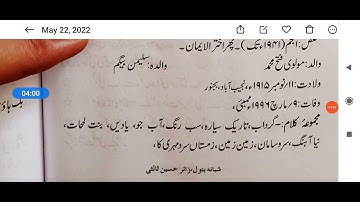 May 22, 2022
انجم (۱۹۴۱ء تک)۔ پھر اختر الایمان۔
والد: مولوی فتح محمد والدہ: سلیمن بیگم
ولادت: ۱۱/نومبر ۱۹۱۵ء، نجیب آباد، بجنور
وفات: ۹/مارچ ۱۹۹۶ء ممبئی،
مجموعۂ کلام:۔ گرداب، تاریک سیارہ، سب رنگ، آب جو، یادیں، بنت لمحات،
نیا آہنگ، سروسامان، زمین زمین، زمستاں سرد مہری کا،
شبانہ بتول، زائر حسین ثالثی
04:00